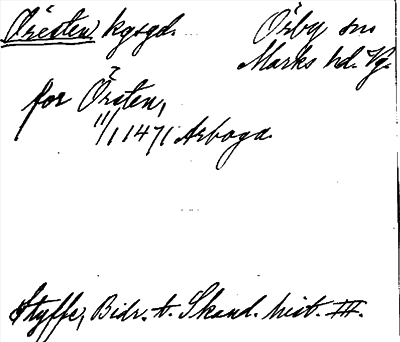 Öresten, kgsgd. Örby sn
Marks hd. Vg.
för Örsten,
11/1 1471 Arboga
Styffe, Bidr. t. Skand. hist. III.